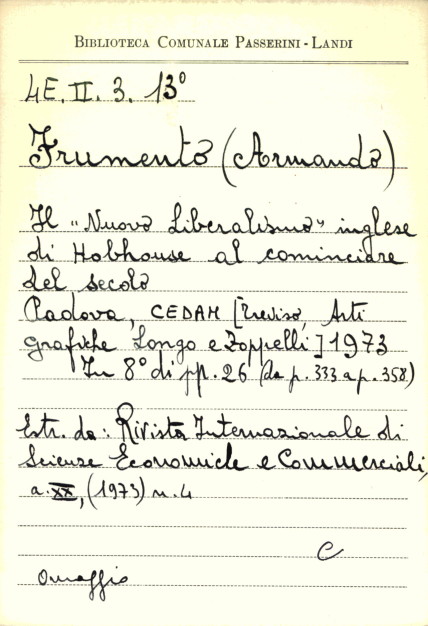 BIBLIOTECA COMUNALE PASSERINI-LANDI
4E. II. 3. 13°
Frumento (Armando)
Il "Nuovo Liberalismo" inglese
di Hobhouse al cominciare
del secolo
Padova, CEDAM [Treviso, Arti
Grafiche Longo e Zoppelli] 1973
In 8° di pp. 26 (da p. 333 a p. 358)
Estr. da: Rivista Internazionale di
Scienze Economiche e Commerciali,
a. XX, (1973) n. 4
C
Omaggio